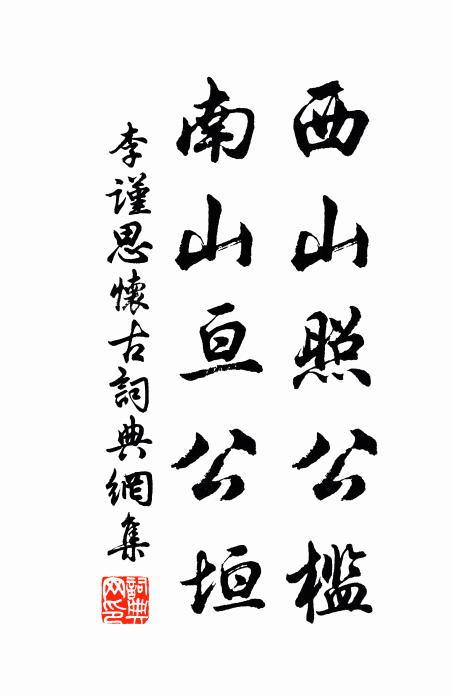 西山照公檻
南山亘公垣
李謹思懷古詞典網集
詞典網印